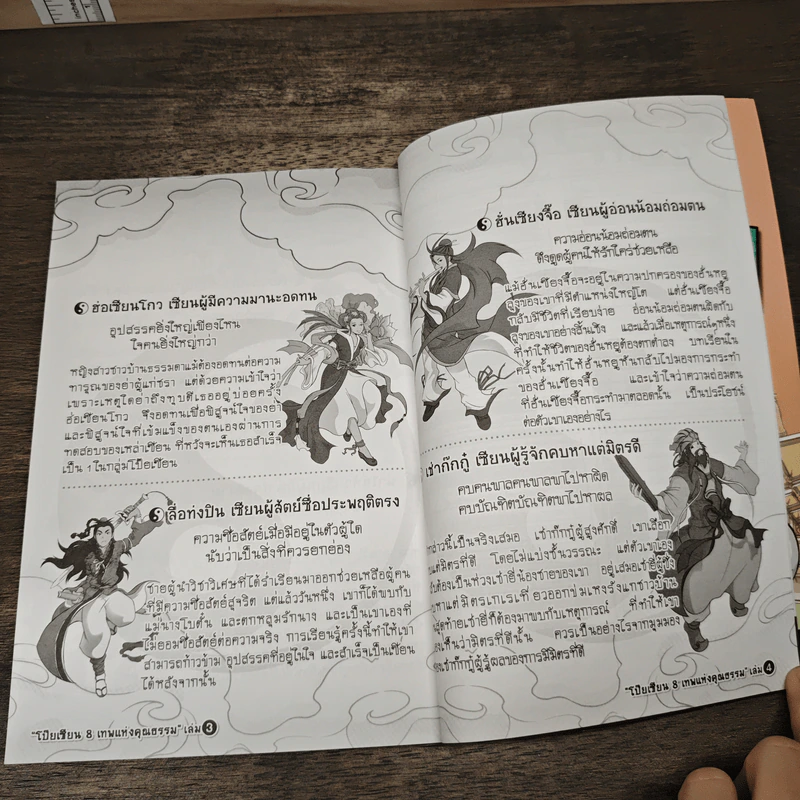 ฮ่อเซียนโกว เซียนผู้มีความมานะอดทน
อุปสรรคยิ่งใหญ่เพียงไหน
ใจคนยิ่งใหญ่กว่า
หญิงสาวชาวบ้านธรรมดาแม้ต้องอดทนต่อความ
ทารุณของอาตู้แก่ชรา แต่ด้วยความเข้าใจว่า
เพราะเหตุใดอาถึงทุบตีเธออยู่บ่อยครั้ง
ฮ่อเซียนโกว จึงอดทนเพื่อพิสูจน์ใจของอา
และพิสูจน์ใจที่เข้มแข็งของตนเองผ่านการ
ทดสอบของเหล่าเซียน ที่หวังจะเห็นเธอสำเร็จ
เป็น 1 ในกลุ่มโป๊ยเซียน
ลื่อท่งปิน เซียนผู้สัตย์ซื่อประพฤติตรง
ความซื่อสัตย์เมื่อมีอยู่ในตัวผู้ใด
นับว่าเป็นสิ่งที่ควรยกย่อง
ชายผู้นำวิชาวิเศษที่ได้ร่ำเรียนมาออกช่วยเหลือผู้คน
ที่มีความซื่อสัตย์สุจริต แต่แล้ววันหนึ่ง เขาก็ได้พบกับ
แม่นางโบตั๋น และตกหลุมรักนาง และเป็นเขาเองที่
ไม่ยอมซื่อสัตย์ต่อความจริง การเรียนรู้ครั้งนี้ทำให้เขา
สามารถก้าวข้าม อุปสรรคที่อยู่ในใจ และสำเร็จเป็นเซียน
ได้หลังจากนั้น
"โป๊ยเซียน 8 เทพแห่งคุณธรรม" เล่ม 3
ฮั่นเซียงจื๊อ เซียนผู้อ่อนน้อมถ่อมตน
ความอ่อนน้อมถ่อมตน
ดึงดูดผู้คนให้รักใคร่ช่วยเหลือ
แม้ฮั่นเซียงจื๊อจะอยู่ในความปกครองของฮั่นหยู
ลุงของเขาที่มีตำแหน่งใหญ่โต แต่ฮั่นเซียงจื๊อ
กลับมีชีวิตที่เรียบง่าย อ่อนน้อมถ่อมตนผิดกับ
ลุงของเขาอย่างสิ้นเชิง และแล้วเมื่อเหตุการณ์หนึ่ง
ที่ทำให้ชีวิตของฮั่นหยูต้องตกต่ำลง บทเรียนใน
ครั้งนั้นทำให้ฮั่นหยูหันกลับไปมองการกระทำ
ของฮั่นเซียงจื๊อ และเข้าใจว่าความถ่อมตน
ที่ฮั่นเซียงจื๊อกระทำมาตลอดนั้น เป็นประโยชน์
ต่อตัวเขาเองอย่างไร
เช่าก๊กกู๋ เซียนผู้รู้จักคบหาแต่มิตรดี
คบคนพาลคนพาลพาไปหาผิด
คบบัณฑิตบัณฑิตพาไปหาผล
กล่าวนี้เป็นจริงเสมอ เช่าก๊กกู๋ผู้สูงศักดิ์ เขาเลือก
แต่มิตรที่ดี โดยไม่แบ่งชั้นวรรณะ แต่ตัวเขาเอง
ต้องเป็นห่วงเช่ายี่น้องชายของเขา อยู่เสมอเช่ายี่ผู้ซึ่ง
หาแต่มิตรเกเรเที่ยวออกข่มเหงรังแกชาวบ้าน
สุดท้ายเช่ายี่ก็ต้องมาพบกับเหตุการณ์ ที่ทำให้เขา
เองเห็นว่ามิตรที่ดีนั้น ควรเป็นอย่างไรจากมุมมอง
ของเช่าก๊กกู๋ผู้รู้ผลของการมีมิตรที่ดี
"โป๊ยเซียน 8 เทพแห่งคุณธรรม" เล่ม 4